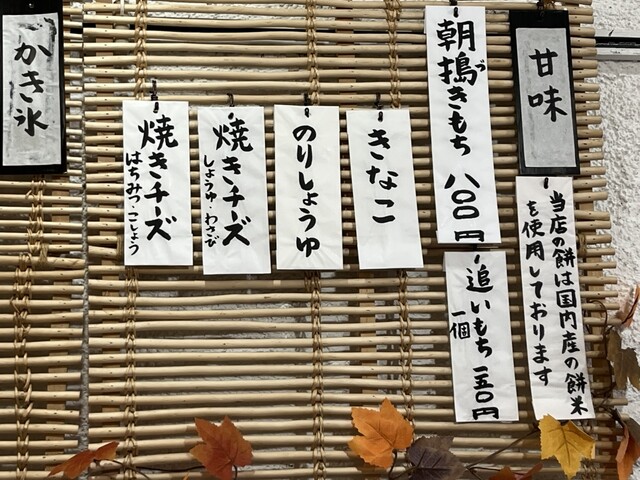 甘味
当店の餅は国内産の餅米
を使用しております
朝搗きもち 八〇〇円
づ
追いもち 一五〇円
一個
きなこ
のりしょうゆ
焼きチーズ
しょうゆ・わさび
焼きチーズ
はちみつ・こしょう
かき氷